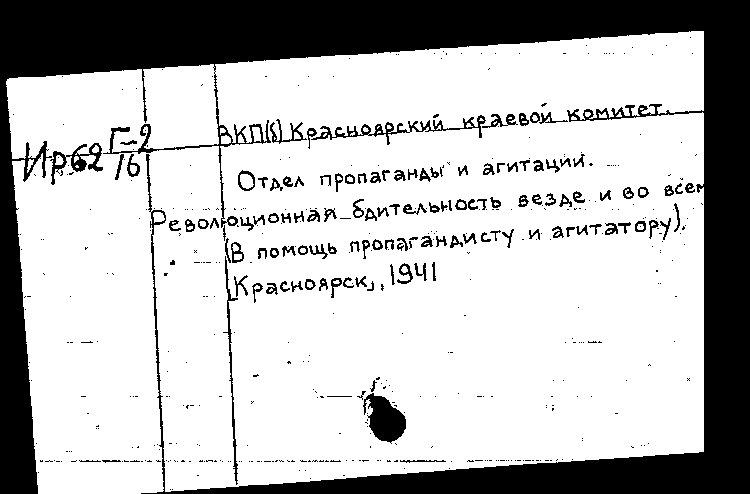 ВКП(б) Красноярский краевой комитет.
Ир62 Г-2/16
Отдел пропаганды и агитации.
Революционная бдительность везде и во всем
(В помощь пропагандисту и агитатору).
[Красноярск], 1941